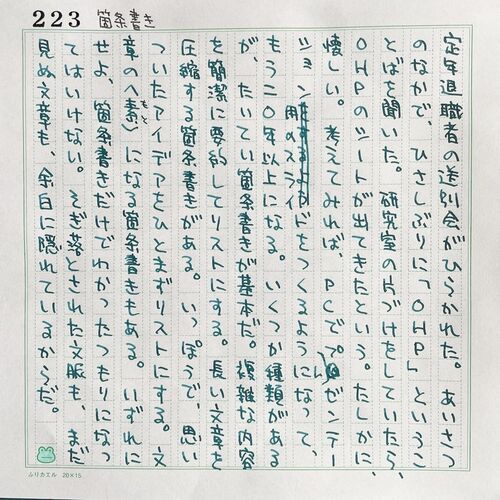 223 箇条書き
定年退職者の送別会がひらかれた。あいさつ
のなかで、ひさしぶりに「OHP」というこ
とばを聞いた。研究室の片づけをしていたら、
OHPのシートが出てきたという。たしかに、
懐しい。考えてみれば、PCでプレゼンテー
ション用のスライドをつくるようになって、
もう二〇年以上になる。いくつか種類がある
が、たいてい箇条書きが基本だ。複雑な内容
を簡潔に要約してリストにする。長い文章を
圧縮する箇条書きがある。いっぽうで、思い
ついたアイデアをひとまずリストにする。文
章の〈素〉になる箇条書きもある。いずれに
もと
せよ、箇条書きだけでわかったつもりになっ
てはいけない。そぎ落とされた文脈も、まだ
見ぬ文章も、余白に隠れているからだ。
ふりカエル 20×15